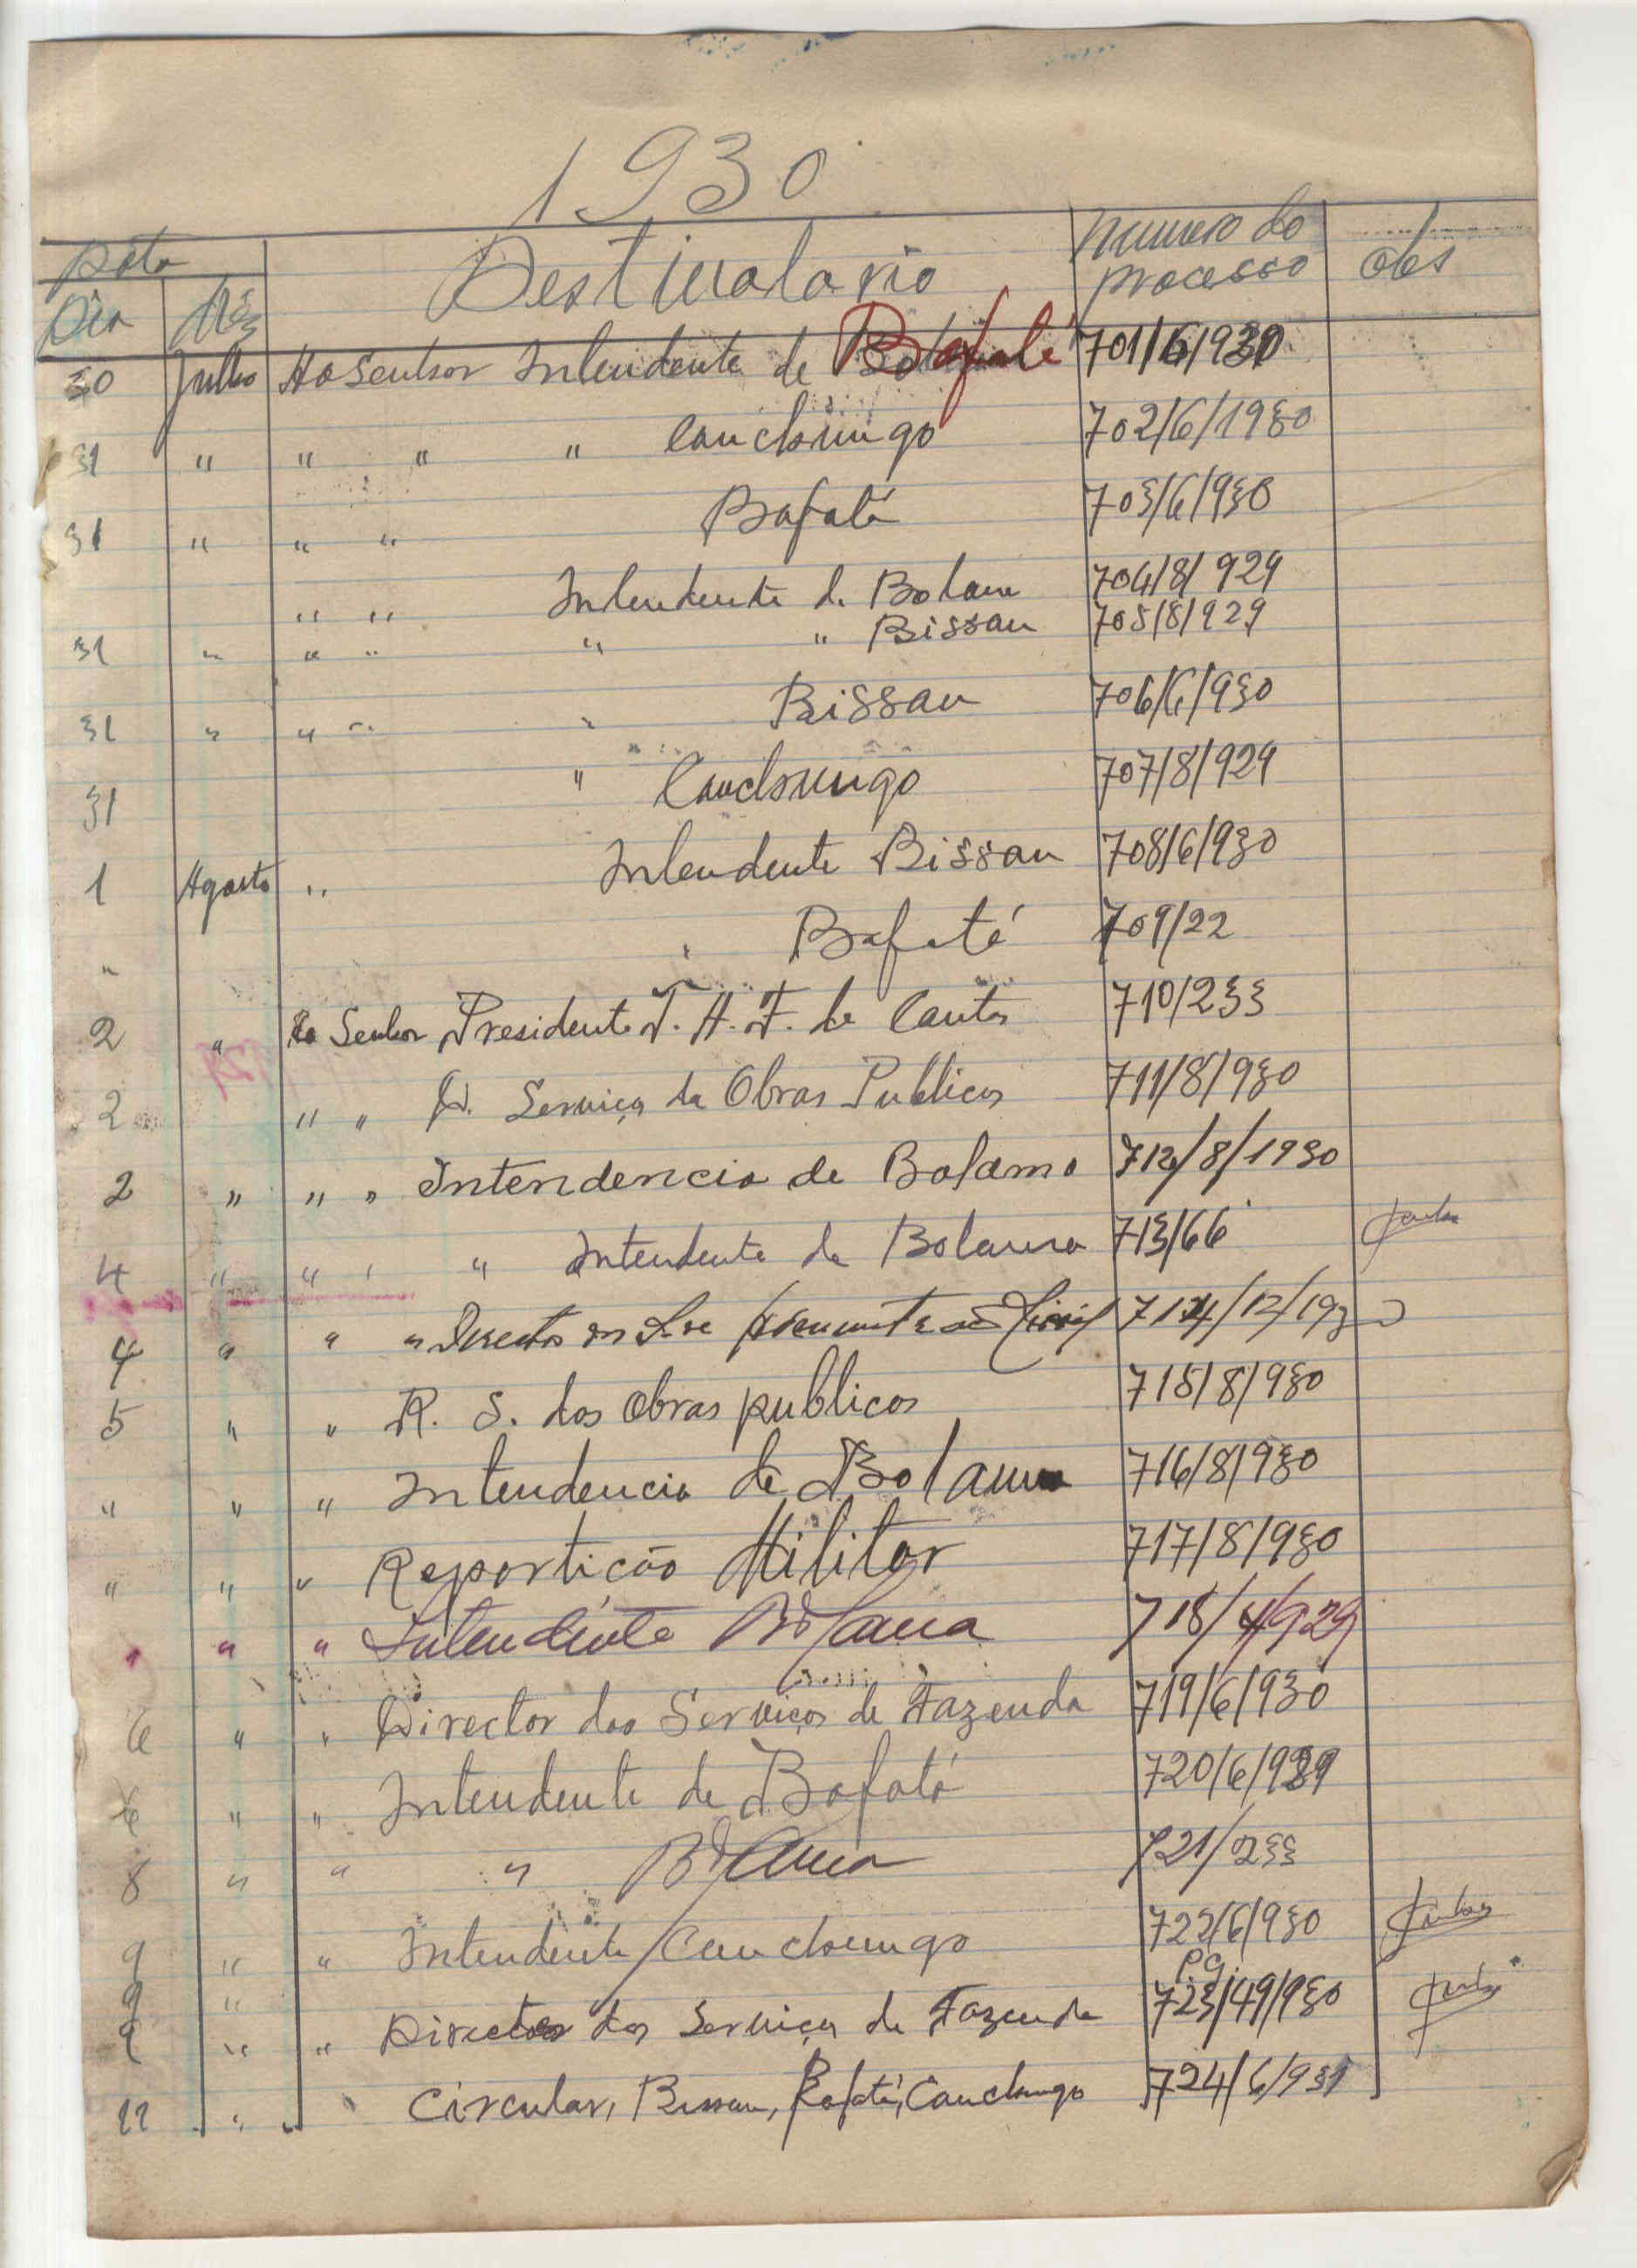 1930
Data
Destinatario
Numero do
processo
obs
Dia Mês
30 Julho Ao Senhor Intendente de Bafatá 701/6/930
31 " " " " Canchungo 702/6/1930
31 " " " Bafatá 703/6/930
" " Intendente de Bolama 704/8/929
31 " " " " " Bissau 705/8/929
31 " " " " Bissau 706/6/930
31 " Canchungo 707/8/929
1 Agosto " Intendente Bissau 708/6/930
" " Bafatá 709/22
2 " Ao Senhor Presidente T. A. F. de Contas 710/233
2 " " D. Serviços da Obras Publicas 711/8/930
2 " " " Intendencia de Bolama 712/8/1930
4 " " " " Intendente de Bolama 713/66
4 " " " Director 714/12/193
5 " " R. S. dos Obras publicas 715/8/930
" " " Intendencia de Bolama 716/8/930
" " " Repartição Militar 717/8/930
" " " Intendente Bolama 718/4/929
6 " " Director dos Serviços de Fazenda 719/6/930
6 " " Intendente de Bafatá 720/6/929
8 " " " Bolama 721/233
9 " " Intendente Canchungo 722/6/930
9 " P.G.
9 " " Director dos Serviços de Fazenda 723/49/930
11 " " Circular, Bissau, Bafatá, Canchungo 724/6/931